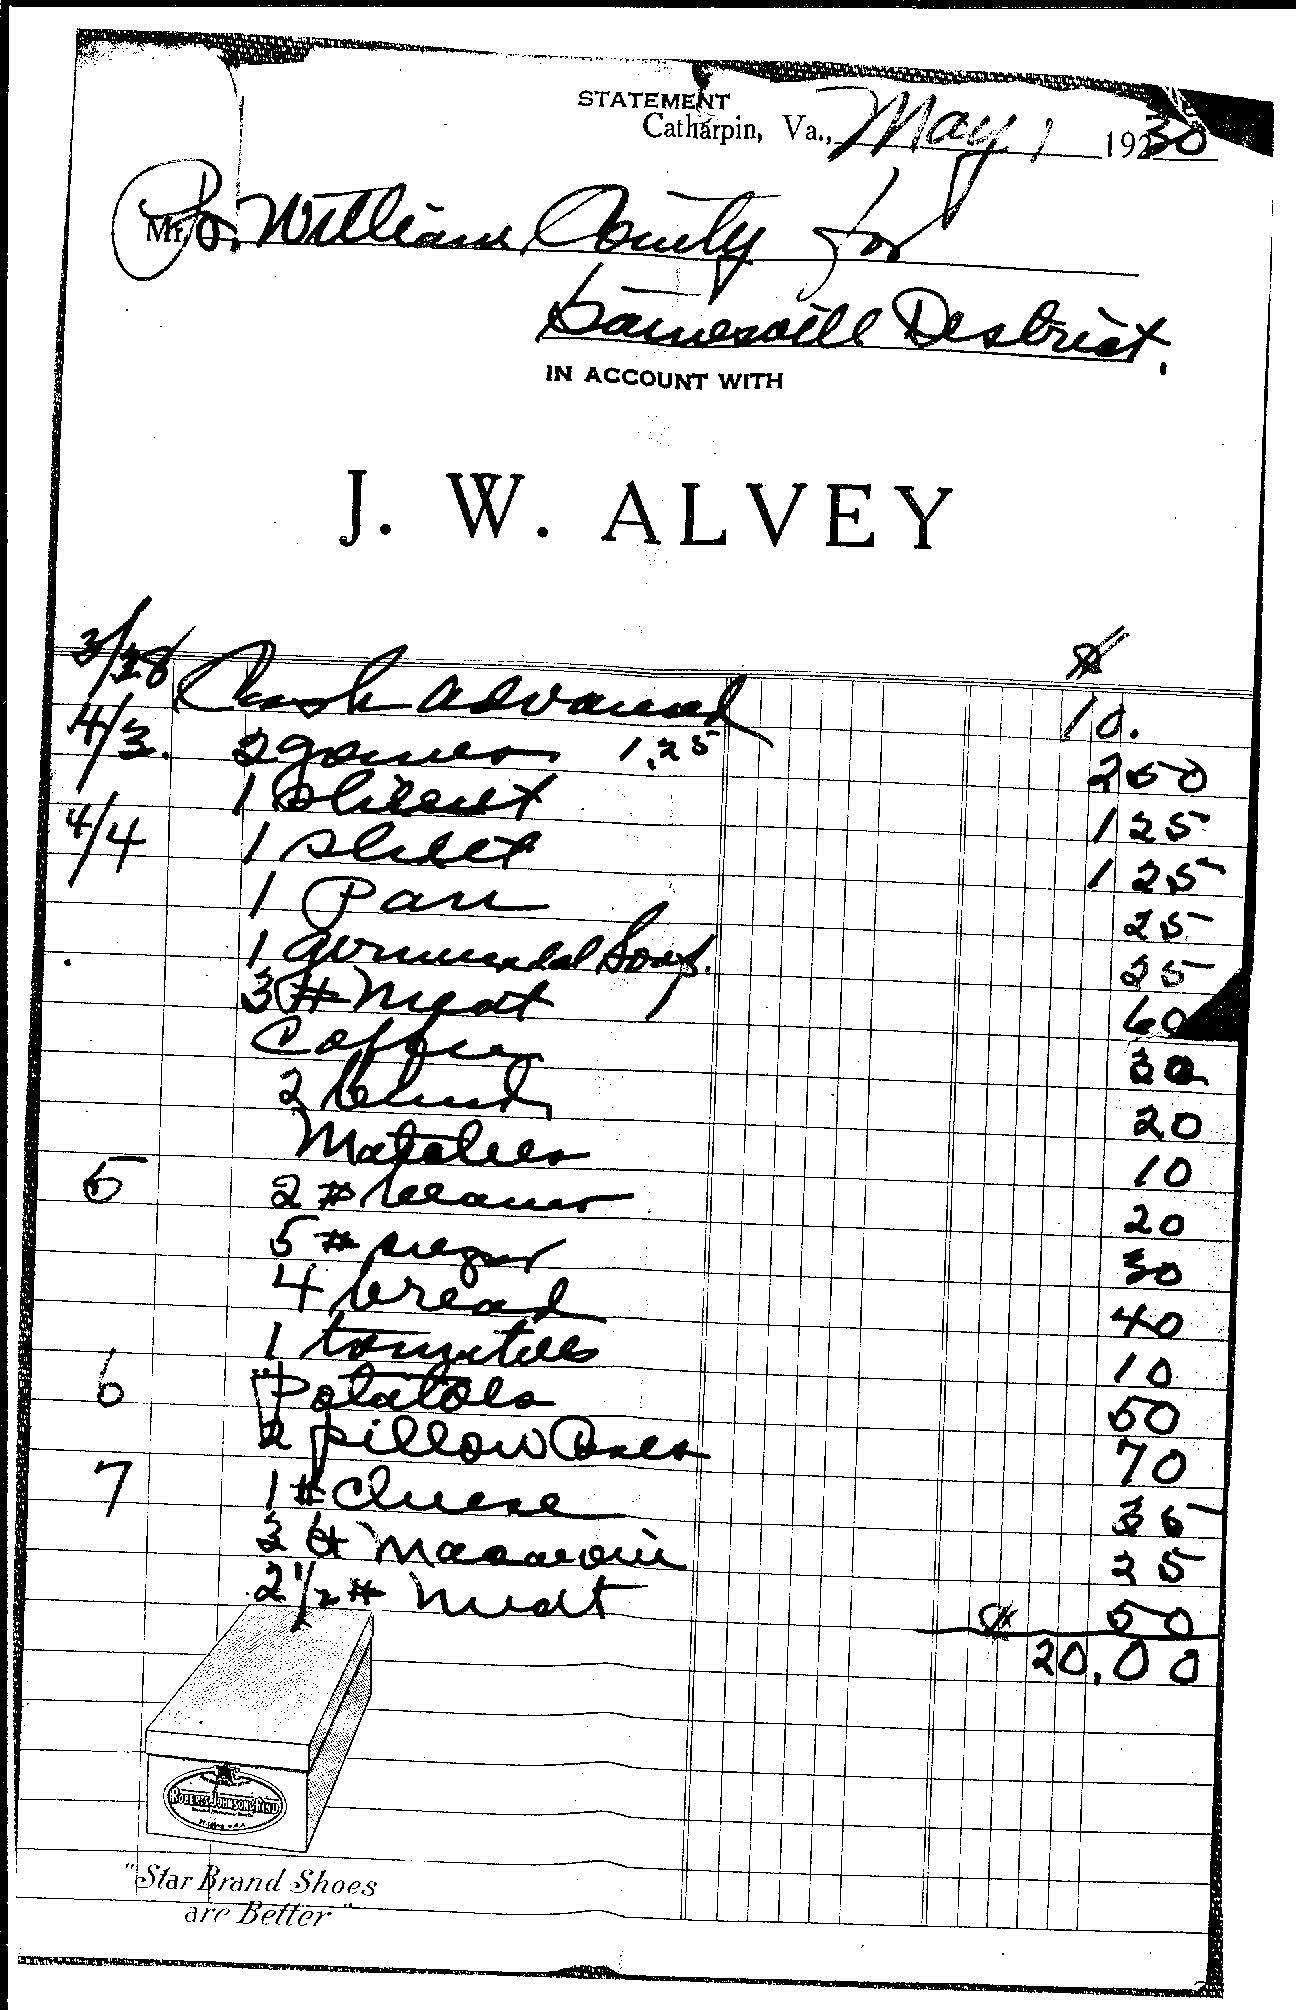 STATEMENT
Catharpin, Va., May 1 1930
Mr. Pr. William County for
Gainesvill District.
IN ACCOUNT WITH
J. W. ALVEY
$
3/28 Cash advanced 10.
4/3. 2 gowns 1.25 250
1 sheet 125
4/4 1 sheet 125
1 Pan 25
1 Soap. 25
3 # Meat 60
Coffee 30
2 bread 20
Matches 10
5 2 # beans 20
5 # sugar 30
4 bread 40
1 tomatoes 10
6 Potatoes 50
2 pillow Cases 70
7 1 # Cheese 35
3 Macaroni 25
2 1/2 # Meat 50
$ 20.00
ROBERTS, JOHNSON & RAND
"Star Brand Shoes
are Better"